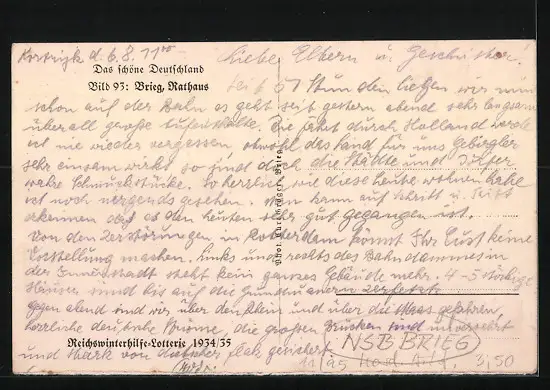 Kortrijk d. 6.8. 11⁰⁰
Liebe Eltern u. Geschwister!
Das schöne Deutschland
Bild 93: Brieg, Rathaus
Seit 51 Stunden liegen wir nun
schon auf der Bahn es geht seit gestern abend sehr langsam
überall große Aufenthalte. Die Fahrt durch Holland werde
ich nie wieder vergessen, obwohl das Land für uns Gebirgler
sehr einsam wirkt so sind doch die Städte und Dörfer
wahre Schmuckstücke. So herrlich wie diese Leute wohnen habe
ich noch nirgends gesehen. Man kann auf Schritt u. Tritt
erkennen daß es den Leuten sehr gut gegangen ist.
Von den Zerstörungen in Rotterdam könnt Ihr Euch keine
Vorstellung machen. Links und rechts des Bahndammes in
der Innenstadt steht kein ganzes Gebäude mehr. 4-5 stöckige
Häuser sind bis auf die Grundmauern zerfetzt.
Gegen abend sind wir über den Rhein und über die Maas gefahren,
herrliche deutsche Ströme, die großen Brücken sind unversehrt
Reichswinterhilfe-Lotterie 1934/35
und stark von deutscher Flak gesichert.
NSB BRIEG
11/95
3,50